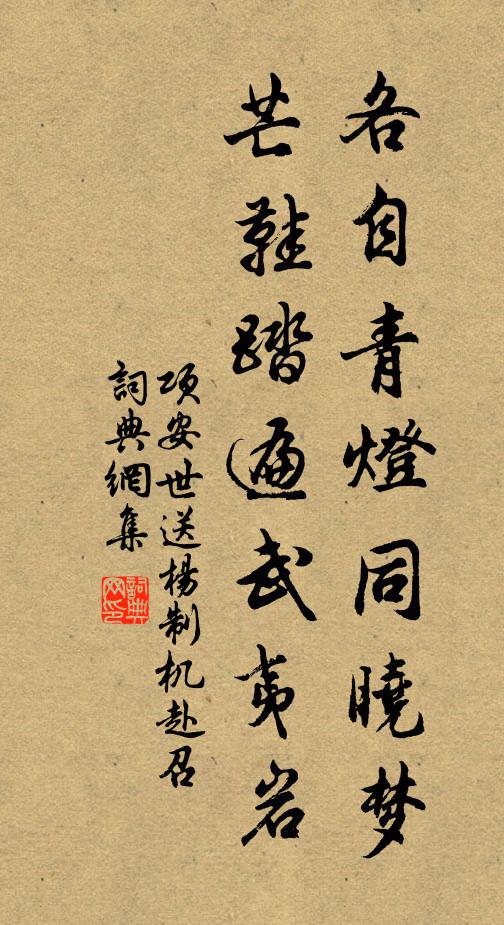 各自青燈同曉梦
芒鞋踏遍武夷岩
项安世送楊制机赴召
詞典網集
詞典网印